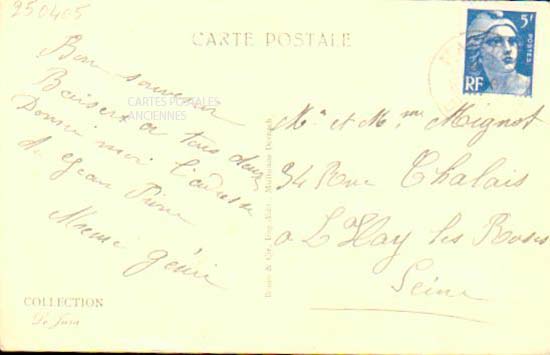 250405
CARTE POSTALE
5F
POSTES
RF
Bon souvenir
Baisers a tous deux
Donnez moi l'adresse
de Jean Pierre
Meme
CARTES POSTALES
ANCIENNES
Mr et Mme Mignot
34 Rue Chalais
a L'Hay les Roses
Seine
Braun & Cie, Imp.-Edit., Mulhouse-Dornach
COLLECTION
Le Jura